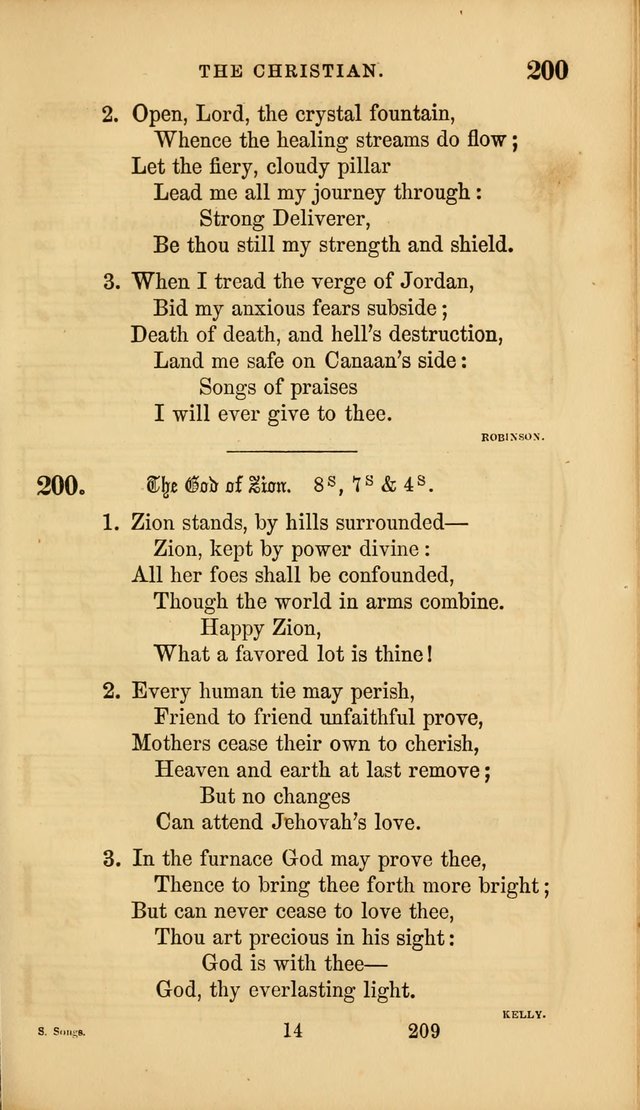 THE CHRISTIAN. 200
2. Open, Lord, the crystal fountain,
Whence the healing streams do flow;
Let the fiery, cloudy pillar
Lead me all my journey through:
Strong Deliverer,
Be thou still my strength and shield.
3. When I tread the verge of Jordan,
Bid my anxious fears subside;
Death of death, and hell's destruction,
Land me safe on Canaan's side:
Songs of praises
I will ever give to thee.
ROBINSON.
200. The God of Zion. 8s, 7s & 4s.
1. Zion stands, by hills surrounded—
Zion, kept by power divine:
All her foes shall be confounded,
Though the world in arms combine.
Happy Zion,
What a favored lot is thine!
2. Every human tie may perish,
Friend to friend unfaithful prove,
Mothers cease their own to cherish,
Heaven and earth at last remove;
But no changes
Can attend Jehovah's love.
3. In the furnace God may prove thee,
Thence to bring thee forth more bright;
But can never cease to love thee,
Thou art precious in his sight:
God is with thee—
God, thy everlasting light.
KELLY.
S. Songs. 14 209